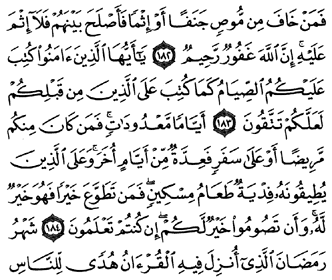 فَمَنْ خَافَ مِن مُّوصٍ جَنَفًا أَوْ إِثْمًا فَأَصْلَحَ بَيْنَهُمْ فَلَآ إِثْمَ
عَلَيْهِ إِنَّ ٱللَّهَ غَفُورٌ رَّحِيمٌ ١٨٢ يَٰٓأَيُّهَا ٱلَّذِينَ ءَامَنُوا۟ كُتِبَ
عَلَيْكُمُ ٱلصِّيَامُ كَمَا كُتِبَ عَلَى ٱلَّذِينَ مِن قَبْلِكُمْ
لَعَلَّكُمْ تَتَّقُونَ ١٨٣ أَيَّامًا مَّعْدُودَٰتٍ فَمَن كَانَ مِنكُم
مَّرِيضًا أَوْ عَلَىٰ سَفَرٍ فَعِدَّةٌ مِّنْ أَيَّامٍ أُخَرَ وَعَلَى ٱلَّذِينَ
يُطِيقُونَهُۥ فِدْيَةٌ طَعَامُ مِسْكِينٍ فَمَن تَطَوَّعَ خَيْرًا فَهُوَ خَيْرٌ
لَّهُۥ وَأَن تَصُومُوا۟ خَيْرٌ لَّكُمْ إِن كُنتُمْ تَعْلَمُونَ ١٨٤ شَهْرُ
رَمَضَانَ ٱلَّذِىٓ أُنزِلَ فِيهِ ٱلْقُرْءَانُ هُدًى لِّلنَّاسِ